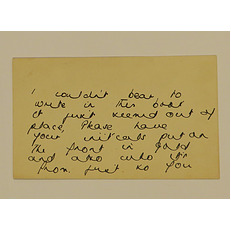 I couldn't bear to
write in this book
it just seemed out of
place, Please have
your initials put on
the front in gold
and also who it's
from. just so you